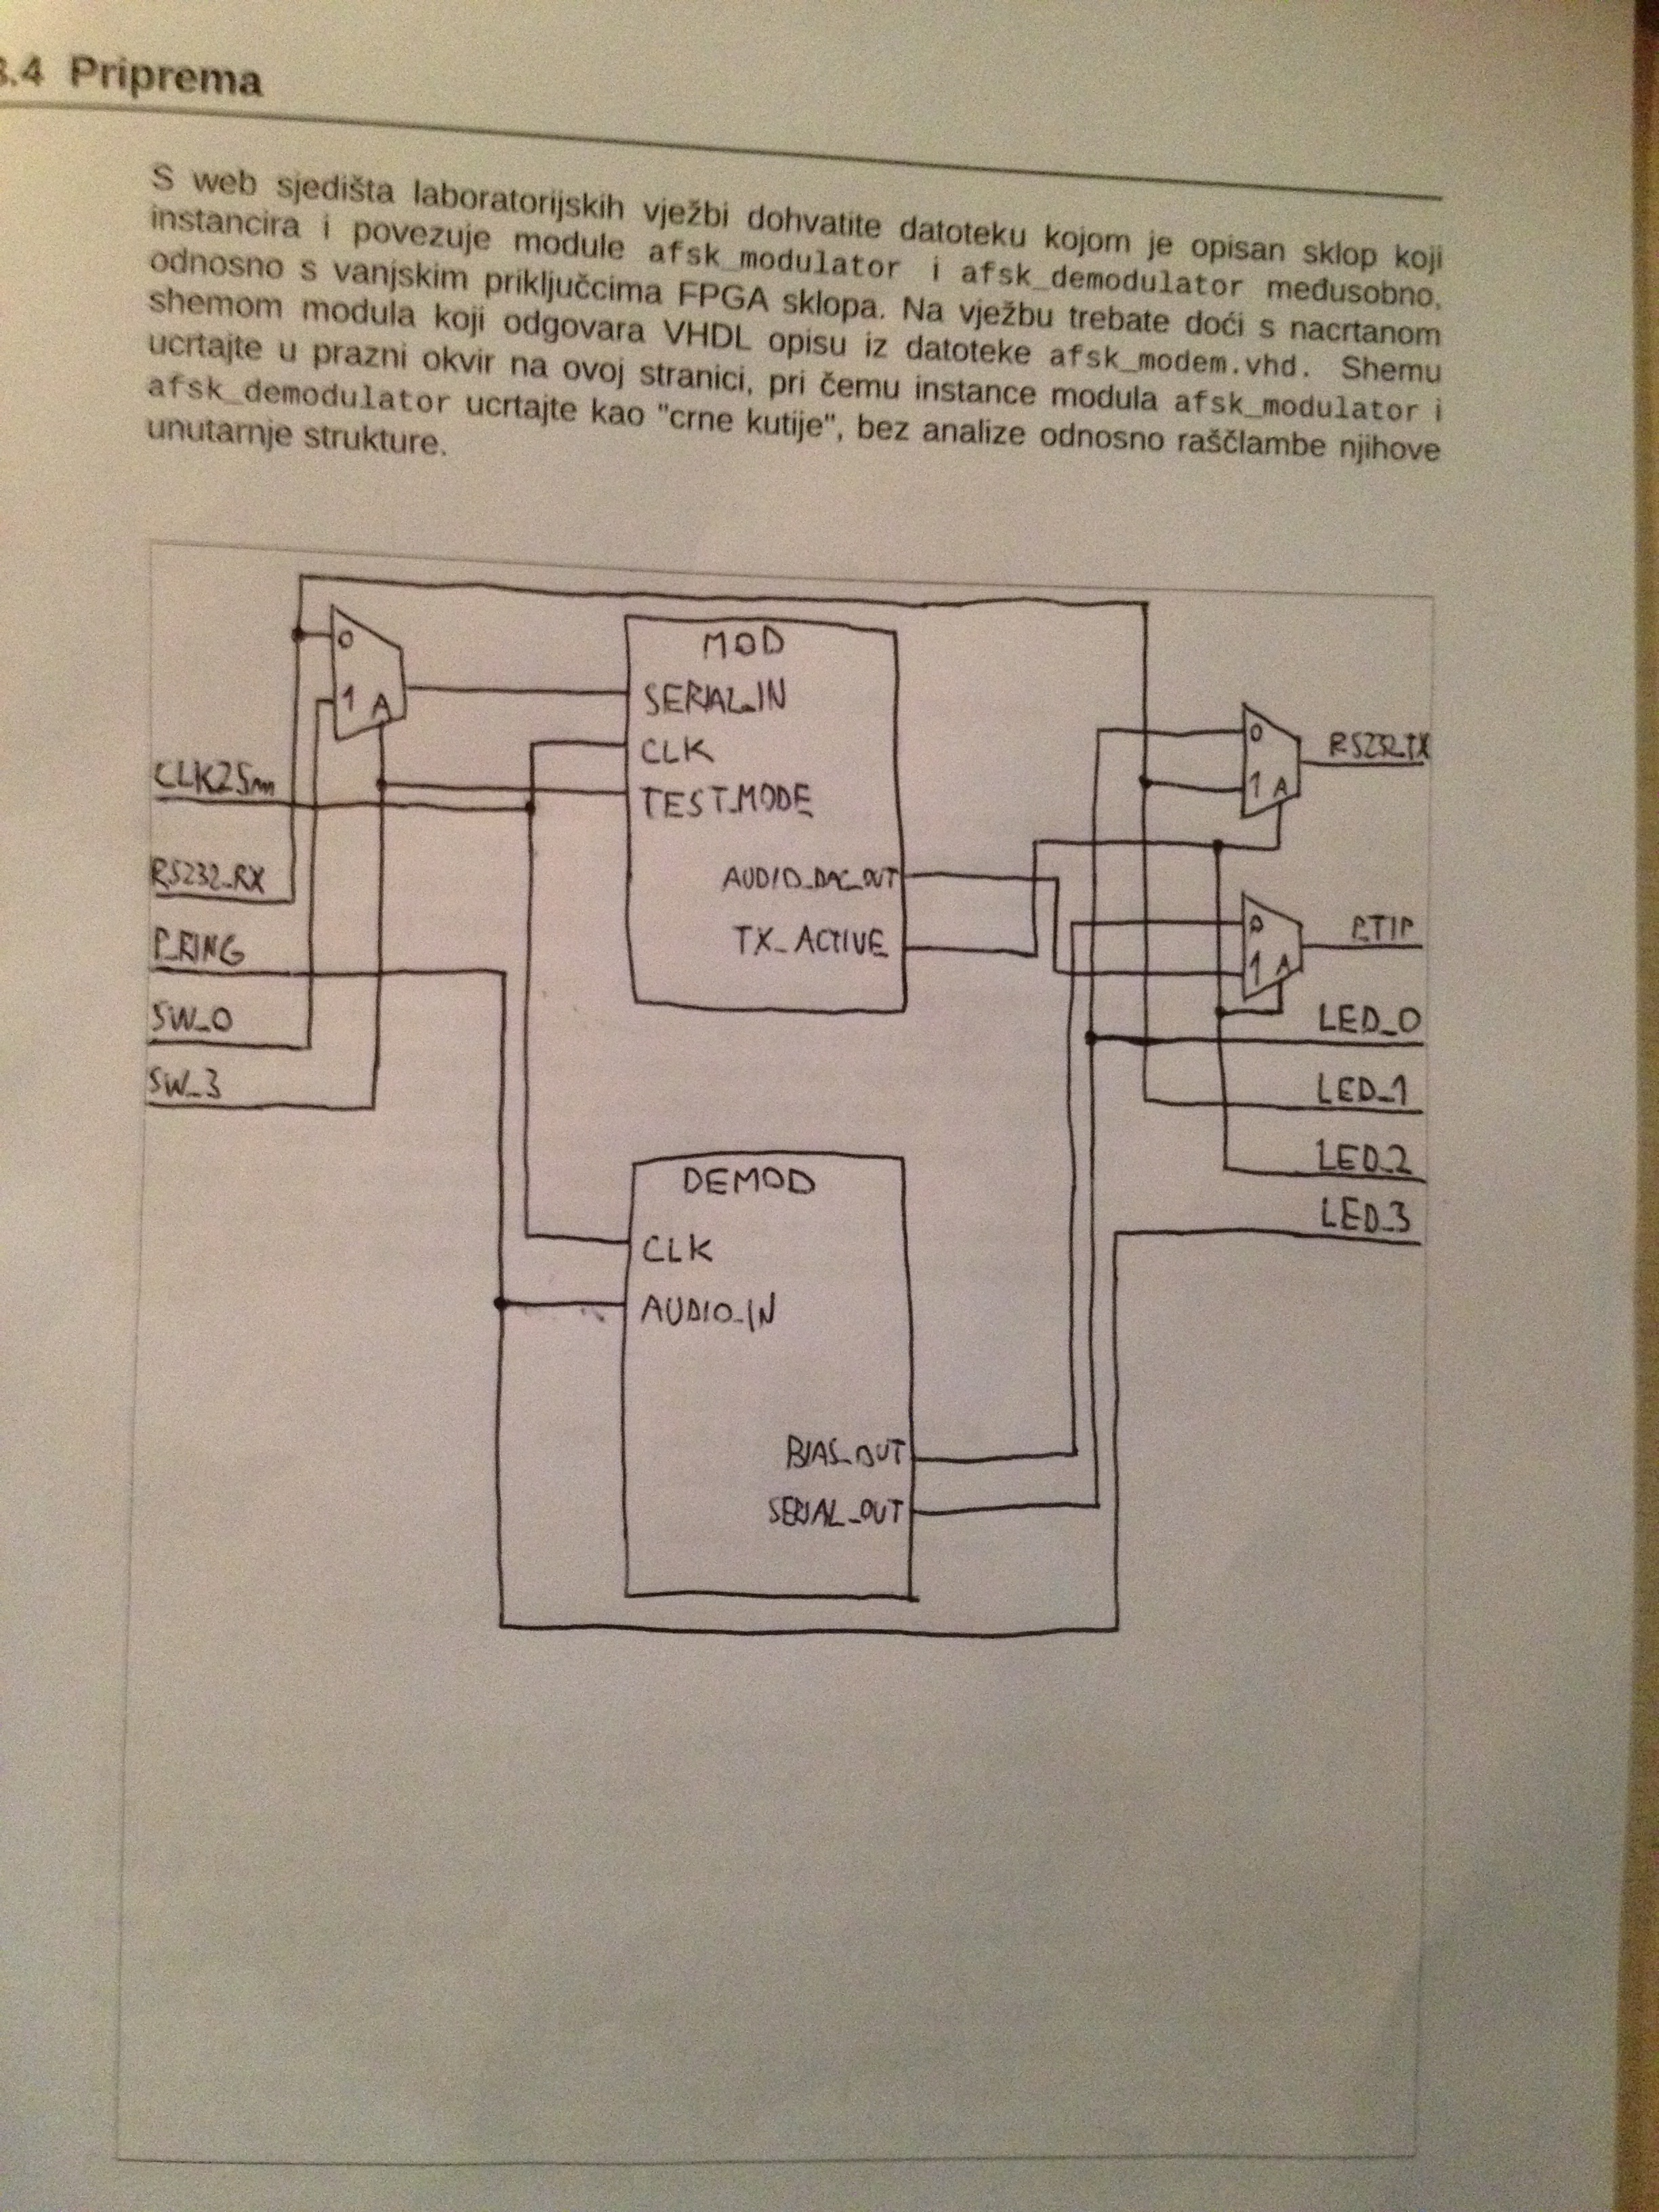 3.4 Priprema
S web sjedišta laboratorijskih vježbi dohvatite datoteku kojom je opisan sklop koji
instancira i povezuje module afsk_modulator i afsk_demodulator međusobno,
odnosno s vanjskim priključcima FPGA sklopa. Na vježbu trebate doći s nacrtanom
shemom modula koji odgovara VHDL opisu iz datoteke afsk_modem.vhd. Shemu
ucrtajte u prazni okvir na ovoj stranici, pri čemu instance modula afsk_modulator i
afsk_demodulator ucrtajte kao "crne kutije", bez analize odnosno raščlambe njihove
unutarnje strukture.
0
1 A
MOD
SERIAL_IN
CLK
TEST_MODE
AUDIO_DAC_OUT
TX_ACTIVE
CLK25m
RS232_RX
P_RING
SW_0
SW_3
0
1 A
RS232_TX
0
1 A
P_TIP
LED_0
LED_1
LED_2
LED_3
DEMOD
CLK
AUDIO_IN
BIAS_OUT
SERIAL_OUT